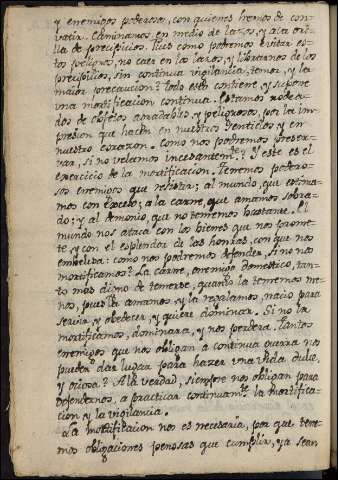 y enemigos poderosos, con quienes hemos de con-
vatir. Caminamos en medio de lazos, y a la ori-
lla de precipicios. Pues como podremos evitar es-
tos peligros, no caer en los lazos, y librarnos de los
precipicios, sin continua vigilancia, temor, y la
maior precaucion? Todo esto contiene, y supone
una mortificacion continua. Estamos rodea-
dos de objetos agradables, y peligrosos, por la im-
presion que hacen en nuestros sentidos, y en
nuestro corazon. Como nos podremos preser-
var, si no velamos incesantemte.? Y este es el
exercicio de la mortificacion. Tenemos podero-
sos enemigos que resistir; al mundo, que estima-
mos con exceso; a la carne, que amamos sobra-
do; y al Demonio, que no tememos bastante. El
mundo nos ataca con los bienes que nos prome-
te, y con el esplendor de las honras, con que nos
embelesa: como nos podremos defender, si no nos
mortificamos? La carne, enemigo domestico, tan-
to mas digno de temerse, quanto la tememos me-
nos, pues la amamos, y la regalamos, nacio para
servir, y obedecer, y quiere dominar. Si no la
mortificamos, dominara, y nos perdera. Tantos
enemigos que nos obligan a continua guerra nos
pueden dar lugar para hazer una vida dulce,
y ociosa? A la verdad, siempre nos obligan para
defendernos, a practicar continuamte. la mortifica-
cion y la vigilancia.
La mortificacion nos es necesaria, por que tene-
mos obligaciones penosas que cumplir, ya sean